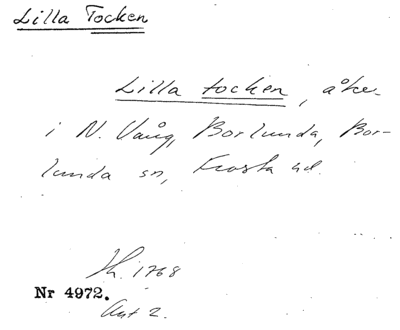 Lilla Tocken
Lilla tocken, åker
i N. Vång, Borlunda, Bor-
lunda sn, Frosta hd.
Sk. 1768
Nr 4972.
Akt 2.